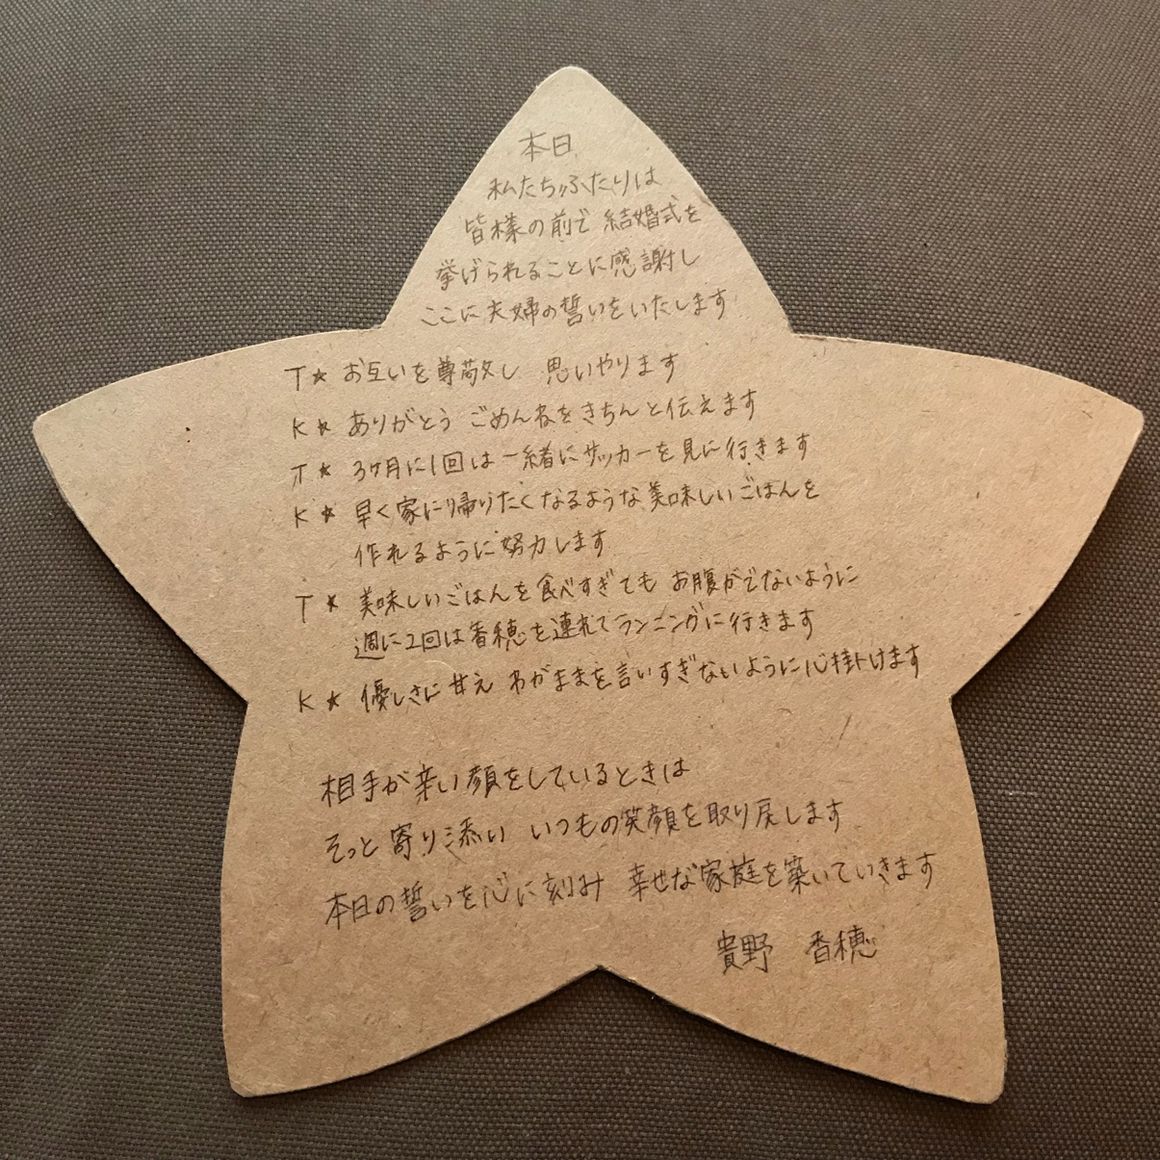 本日
私たちふたりは
皆様の前で 結婚式を
挙げられることに感謝し
ここに夫婦の誓いをいたします
T☆ お互いを尊敬し 思いやります
K☆ ありがとう ごめんねをきちんと伝えます
T☆ 3ヶ月に1回は一緒にサッカーを見に行きます
K☆ 早く家に帰りたくなるような美味しいごはんを
作れるように努力します
T☆ 美味しいごはんを食べすぎても お腹がでないように
週に2回は香穂を連れてランニングに行きます
K☆ 優しさに甘え わがままを言いすぎないように心掛けます
相手が辛い顔をしているときは
そっと寄り添い いつもの笑顔を取り戻します
本日の誓いを心に刻み 幸せな家庭を築いていきます
貴野 香穂